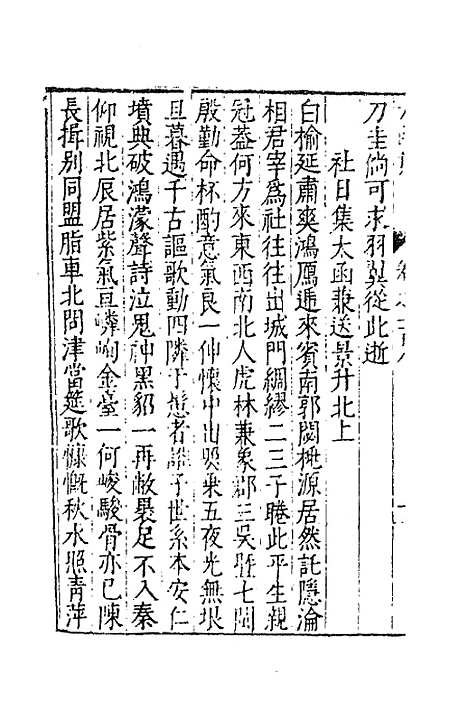 刀圭倘可求羽翼從此逝
社日集太函兼送景升北上
白榆延肅爽鴻鴈遞來賓南郭閟桃源居然託隱淪
相君宰為社往往出城門綢繆二三子睠此平生親
冠蓋何方來東西南北人虎林兼象郡三吳暨七閩
殷勤命杯酌意氣良一伸懷中出照乘五夜光無垠
旦暮遇千古謳歌動四隣于髯者誰子世系本安仁
墳典破鴻濛聲詩泣鬼神黑貂一再敝裹足不入秦
仰視北辰居紫氣亘嶙峋金臺一何峻駿骨亦已陳
長揖別同盟脂車北問津當筵歌慷慨秋水照青萍